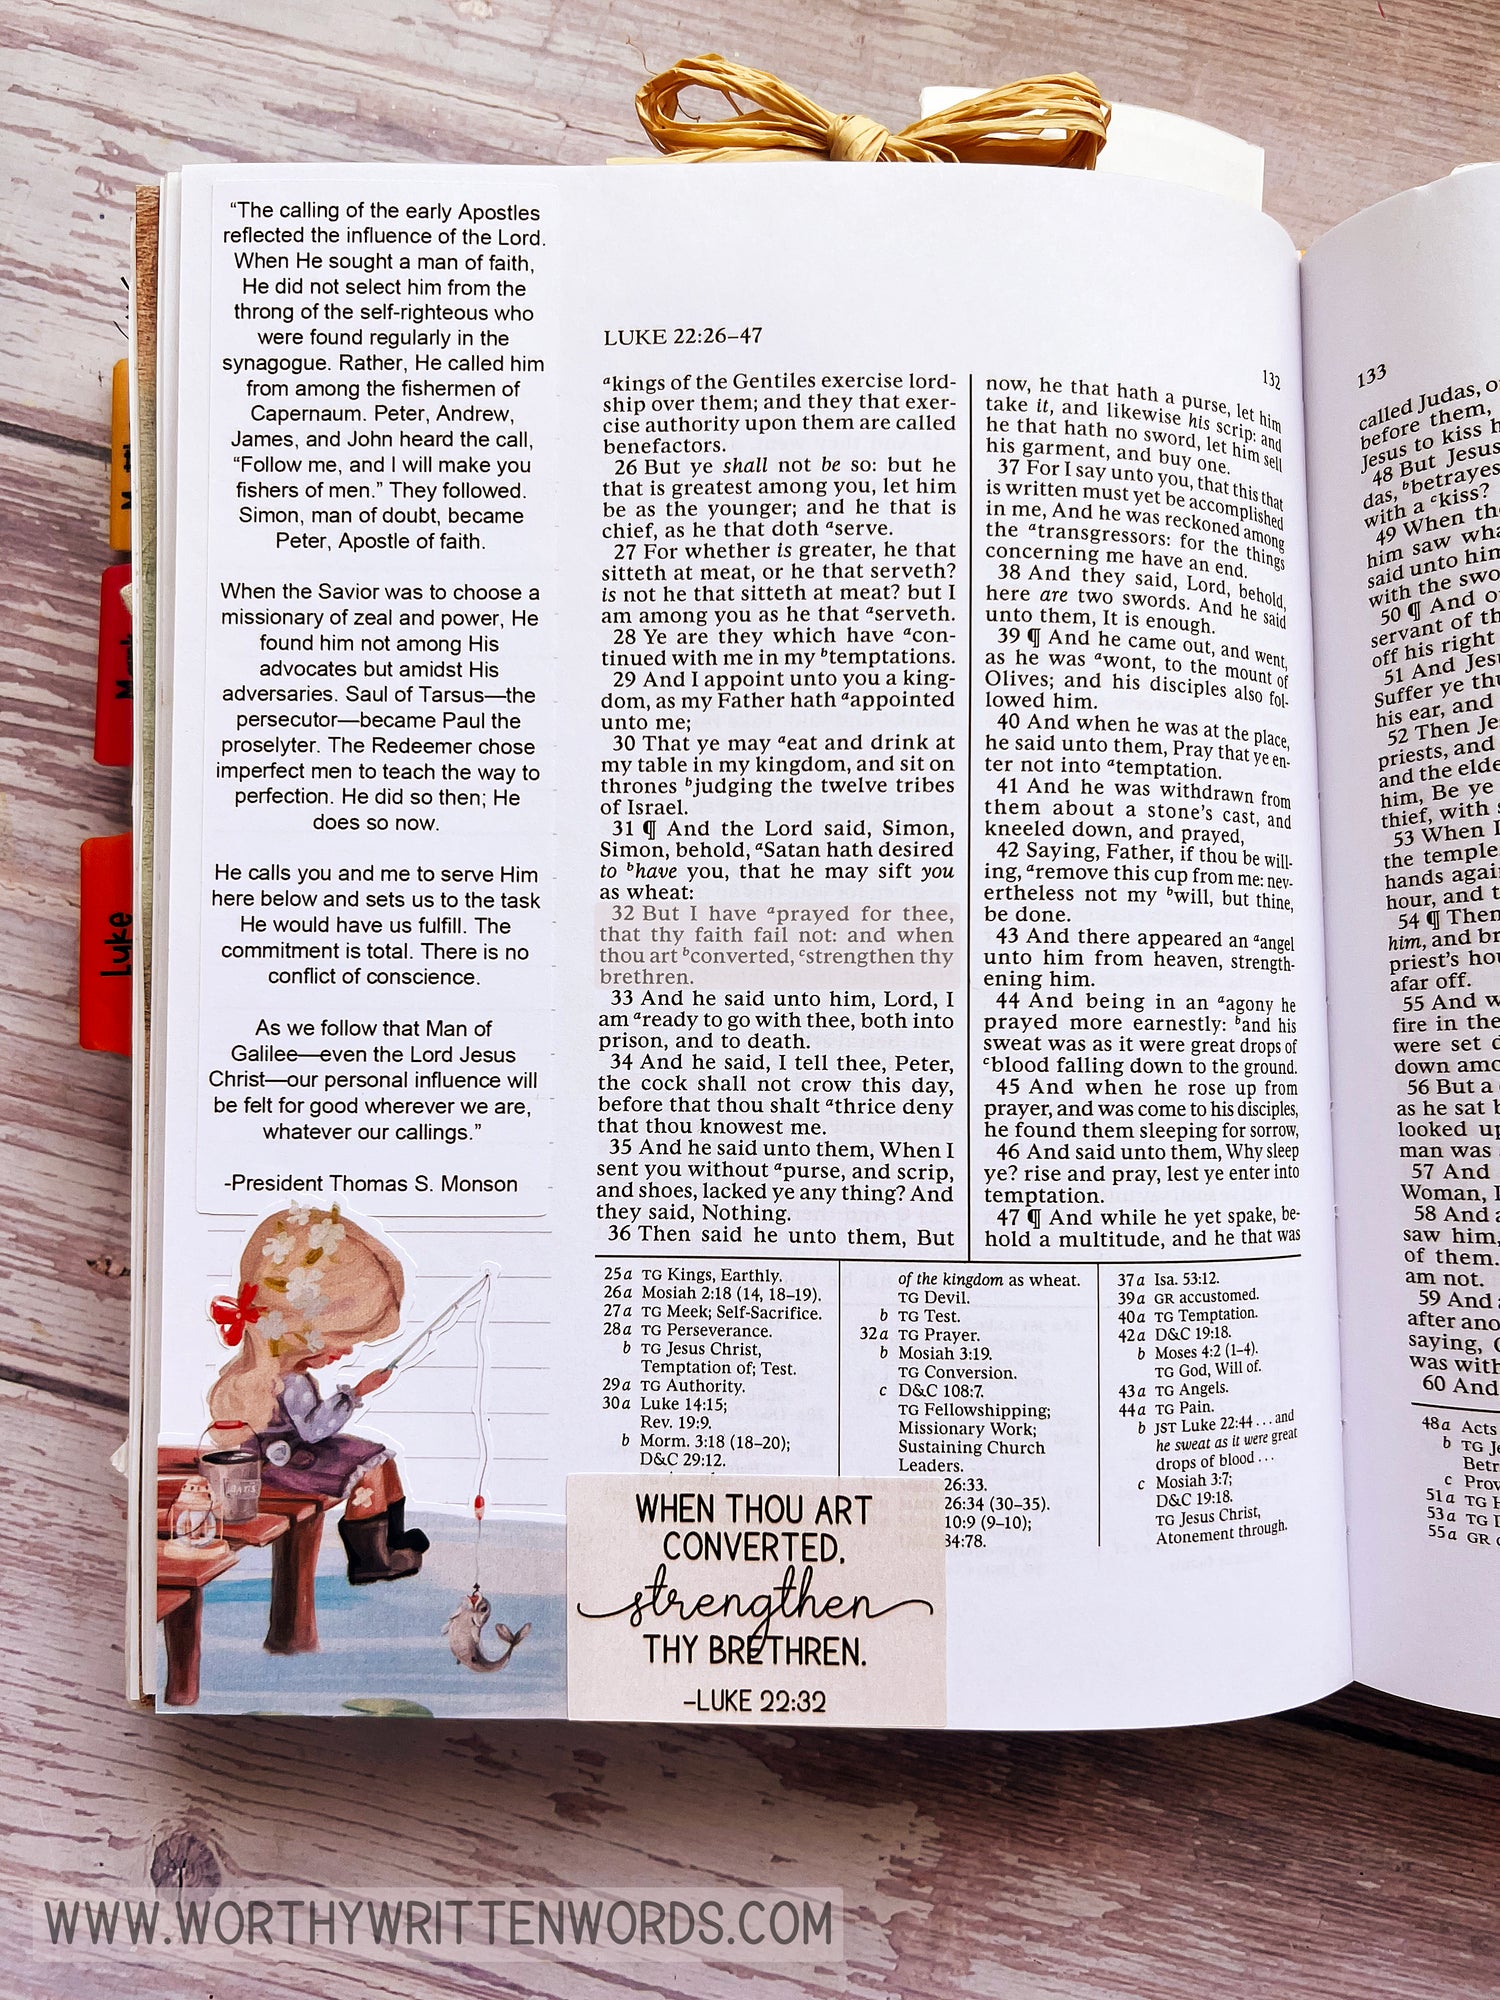 “The calling of the early Apostles
reflected the influence of the Lord.
When He sought a man of faith,
He did not select him from the
throng of the self-righteous who
were found regularly in the
synagogue. Rather, He called him
from among the fishermen of
Capernaum. Peter, Andrew,
James, and John heard the call,
“Follow me, and I will make you
fishers of men.” They followed.
Simon, man of doubt, became
Peter, Apostle of faith.
When the Savior was to choose a
missionary of zeal and power, He
found him not among His
advocates but amidst His
adversaries. Saul of Tarsus—the
persecutor—became Paul the
proselyter. The Redeemer chose
imperfect men to teach the way to
perfection. He did so then; He
does so now.
He calls you and me to serve Him
here below and sets us to the task
He would have us fulfill. The
commitment is total. There is no
conflict of conscience.
As we follow that Man of
Galilee—even the Lord Jesus
Christ—our personal influence will
be felt for good wherever we are,
whatever our callings.”
-President Thomas S. Monson
Luke
LUKE 22:26–47
132
ᵃkings of the Gentiles exercise lord-
ship over them; and they that exer-
cise authority upon them are called
benefactors.
26 But ye shall not be so: but he
that is greatest among you, let him
be as the younger; and he that is
chief, as he that doth ᵃserve.
27 For whether is greater, he that
sitteth at meat, or he that serveth?
is not he that sitteth at meat? but I
am among you as he that ᵃserveth.
28 Ye are they which have ᵃcon-
tinued with me in my ᵇtemptations.
29 And I appoint unto you a king-
dom, as my Father hath ᵃappointed
unto me;
30 That ye may ᵃeat and drink at
my table in my kingdom, and sit on
thrones ᵇjudging the twelve tribes
of Israel.
31 ¶ And the Lord said, Simon,
Simon, behold, ᵃSatan hath desired
to ᵇhave you, that he may sift you
as wheat:
32 But I have ᵃprayed for thee,
that thy faith fail not: and when
thou art ᵇconverted, ᶜstrengthen thy
brethren.
33 And he said unto him, Lord, I
am ᵃready to go with thee, both into
prison, and to death.
34 And he said, I tell thee, Peter,
the cock shall not crow this day,
before that thou shalt ᵃthrice deny
that thou knowest me.
35 And he said unto them, When I
sent you without ᵃpurse, and scrip,
and shoes, lacked ye any thing? And
they said, Nothing.
36 Then said he unto them, But
now, he that hath a purse, let him
take it, and likewise his scrip: and
he that hath no sword, let him sell
his garment, and buy one.
37 For I say unto you, that this that
is written must yet be accomplished
in me, And he was reckoned among
the ᵃtransgressors: for the things
concerning me have an end.
38 And they said, Lord, behold,
here are two swords. And he said
unto them, It is enough.
39 ¶ And he came out, and went,
as he was ᵃwont, to the mount of
Olives; and his disciples also fol-
lowed him.
40 And when he was at the place,
he said unto them, Pray that ye en-
ter not into ᵃtemptation.
41 And he was withdrawn from
them about a stone’s cast, and
kneeled down, and prayed,
42 Saying, Father, if thou be will-
ing, ᵃremove this cup from me: nev-
ertheless not my ᵇwill, but thine,
be done.
43 And there appeared an ᵃangel
unto him from heaven, strength-
ening him.
44 And being in an ᵃagony he
prayed more earnestly: ᵇand his
sweat was as it were great drops of
ᶜblood falling down to the ground.
45 And when he rose up from
prayer, and was come to his disciples,
he found them sleeping for sorrow,
46 And said unto them, Why sleep
ye? rise and pray, lest ye enter into
temptation.
47 ¶ And while he yet spake, be-
hold a multitude, and he that was
25a TG Kings, Earthly.
26a Mosiah 2:18 (14, 18–19).
27a TG Meek; Self-Sacrifice.
28a TG Perseverance.
b TG Jesus Christ,
Temptation of; Test.
29a TG Authority.
30a Luke 14:15;
Rev. 19:9.
b Morm. 3:18 (18–20);
D&C 29:12.
of the kingdom as wheat.
TG Devil.
b TG Test.
32a TG Prayer.
b Mosiah 3:19.
TG Conversion.
c D&C 108:7.
TG Fellowshipping;
Missionary Work;
Sustaining Church
Leaders.
26:33.
26:34 (30–35).
10:9 (9–10);
84:78.
37a Isa. 53:12.
39a GR accustomed.
40a TG Temptation.
42a D&C 19:18.
b Moses 4:2 (1–4).
TG God, Will of.
43a TG Angels.
44a TG Pain.
b JST Luke 22:44 . . . and
he sweat as it were great
drops of blood . . .
c Mosiah 3:7;
D&C 19:18.
TG Jesus Christ,
Atonement through.
WHEN THOU ART
CONVERTED,
strengthen
THY BRETHREN.
–LUKE 22:32
133
called Judas, o
before them,
Jesus to kiss h
48 But Jesus
das, ᵇbetrayes
with a ᶜkiss?
49 When the
him saw wha
said unto him
with the swo
50 ¶ And o
servant of th
off his right
51 And Jesu
Suffer ye thu
his ear, and
52 Then Je
priests, and
and the elde
him, Be ye
thief, with s
53 When I
the temple
hands again
hour, and t
54 ¶ Then
him, and br
priest’s hou
afar off.
55 And w
fire in the
were set d
down amo
56 But a
as he sat b
looked up
man was
57 And
Woman, I
58 And a
saw him,
of them.
am not.
59 And
after ano
saying, O
was with
60 And
48a Acts
b TG Je
Betr
c Prov
51a TG H
53a TG I
55a GR c
WWW.WORTHYWRITTENWORDS.COM